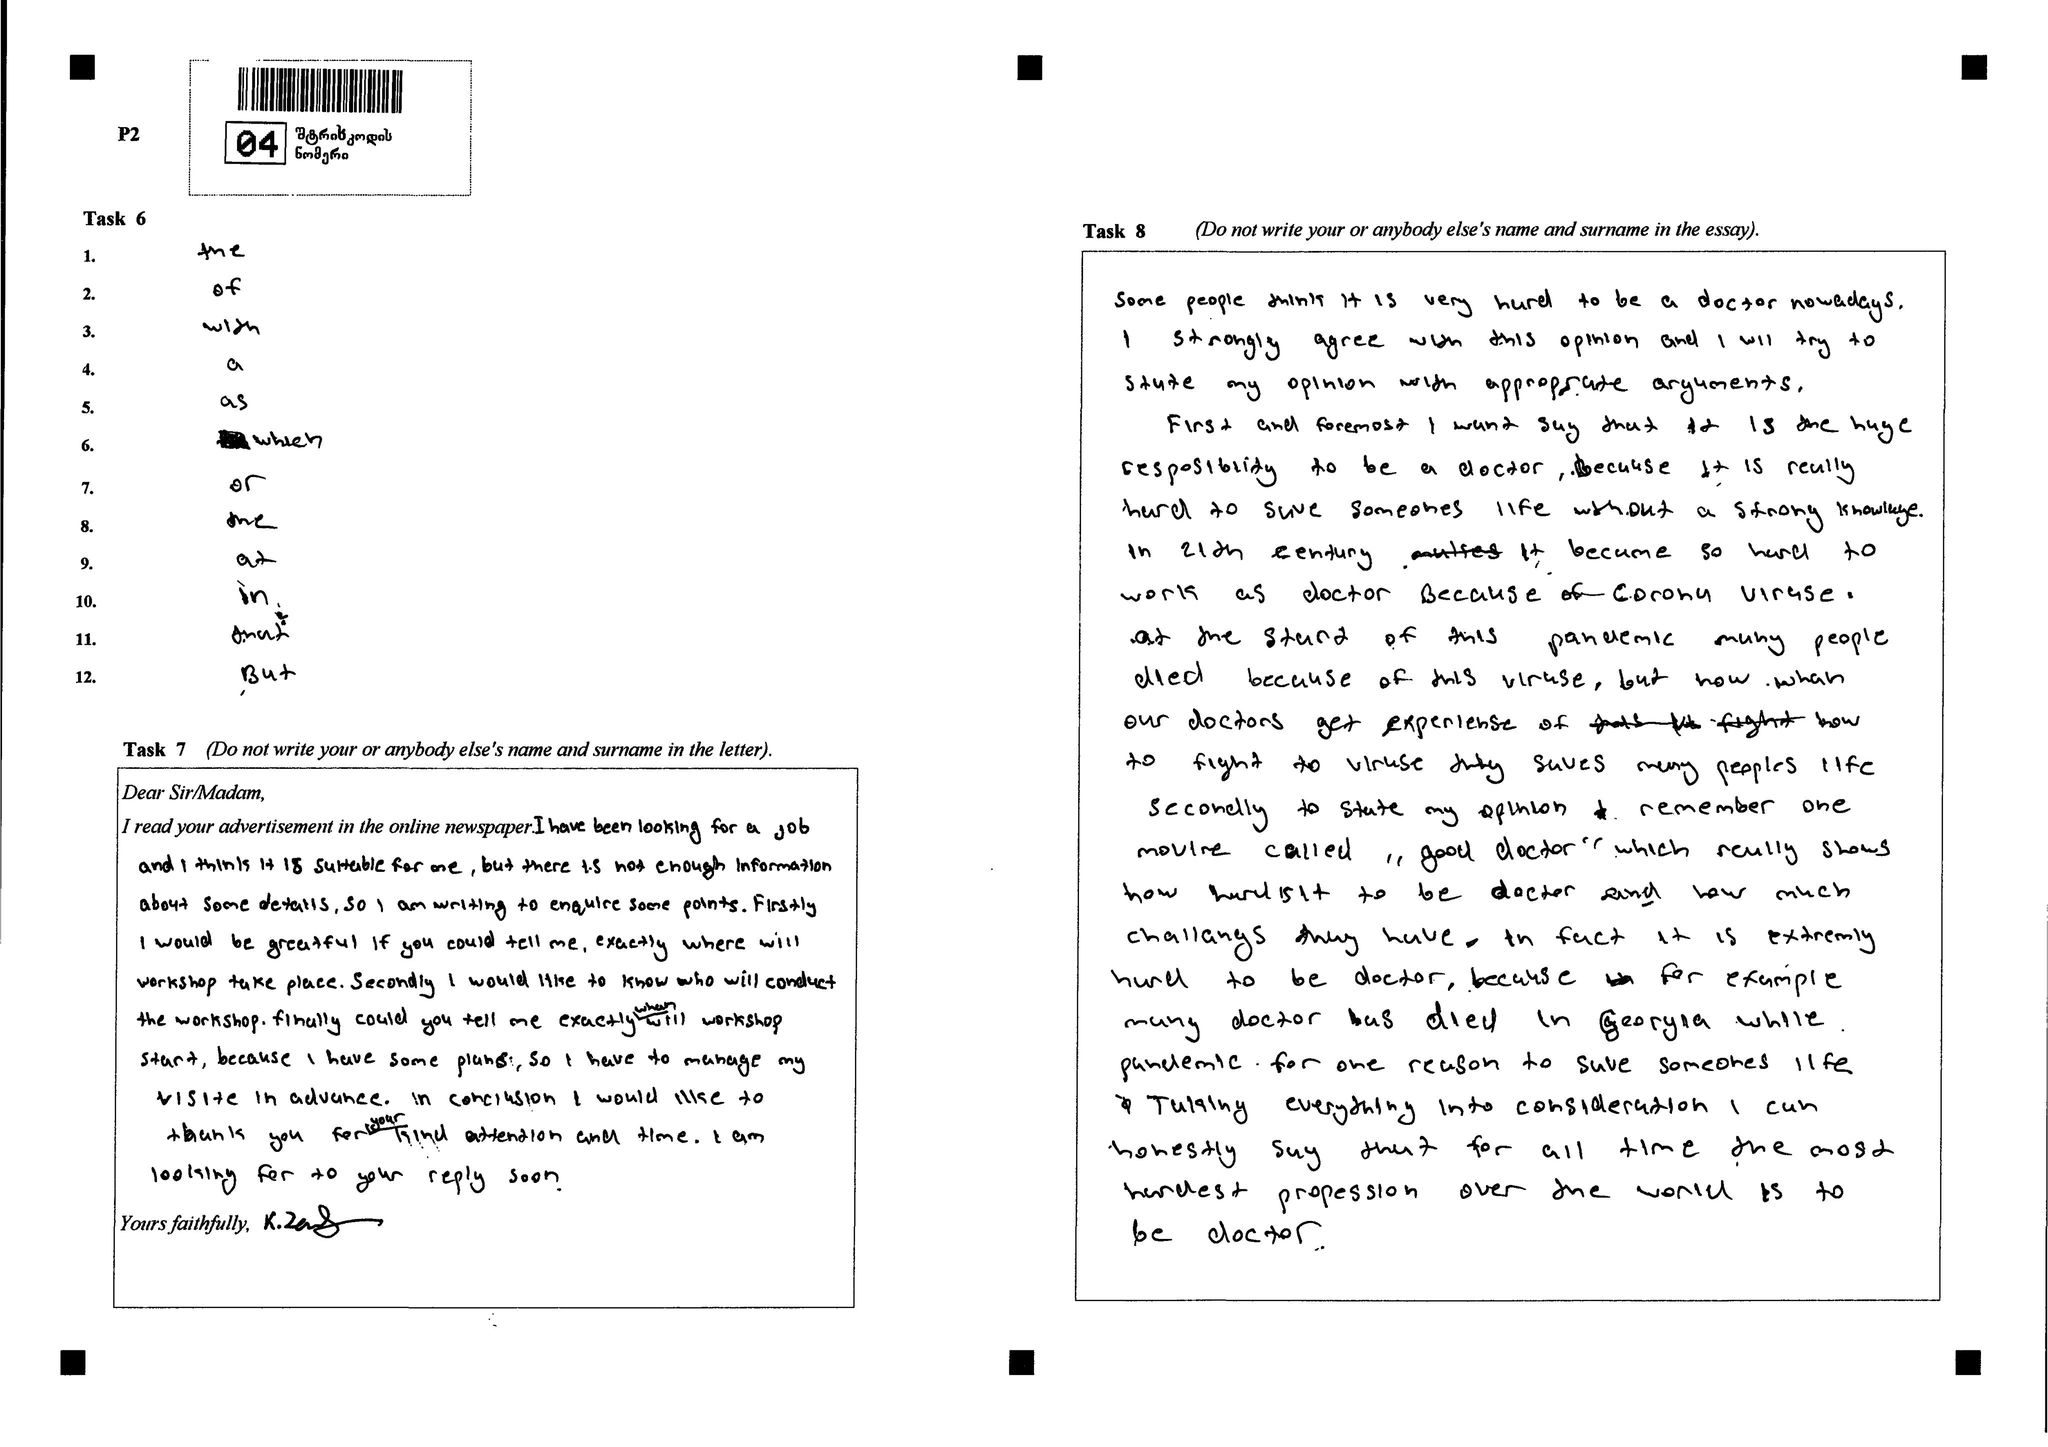 P2
04 შტრიხკოდის
ნომერი
Task 6
1. the
2. of
3. with
4. a
5. as
6. which
7. or
8. the
9. at
10. in
11. that
12. But
Task 7 (Do not write your or anybody else's name and surname in the letter).
Dear Sir/Madam,
I read your advertisement in the online newspaper. I have been looking for a job
and I think it is suitable for me, but there is not enough information
about some details, so I am writing to enquire some points. Firstly
I would be greatful if you could tell me, exactly where will
workshop take place. Secondly I would like to know who will conduct
the workshop. finally could you tell me exactly when will workshop
start, because I have some plans, so I have to manage my
visite in advance. in conclusion I would like to
thank you for your kind attention and time. I am
looking for to your reply soon.
Yours faithfully,
Task 8 (Do not write your or anybody else's name and surname in the essay).
Some people think it is very hard to be a doctor nowadays.
I strongly agree with this opinion and I will try to
state my opinion with approprate arguments.
First and foremost I want say that it is the huge
resposiblity to be a doctor, because it is really
hard to save someones life without a strong knowlage.
In 21th century it became so hard to
work as doctor Because of Corona viruse.
at the start of this pandemic many people
died because of this viruse, but now whan
our doctors get experiense of how
to fight to viruse they saves many peoples life
Secondly to state my opinion I remember one
movire called ,,good doctor" which really shows
how hard is it to be doctor and how much
challangs they have. In fact it is extremly
hard to be doctor, because for example
many doctor has died in Georgia while
pandemic for one reason to save someones life
Taking everything into consideration I can
honestly say that for all time the most
hardest propession over the world is to
be doctor.